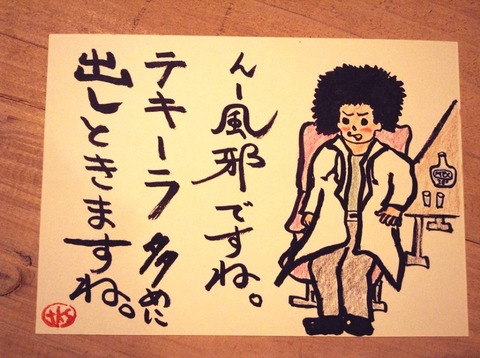 んー風邪ですね。
テキーラ 多めに
出しときますね。